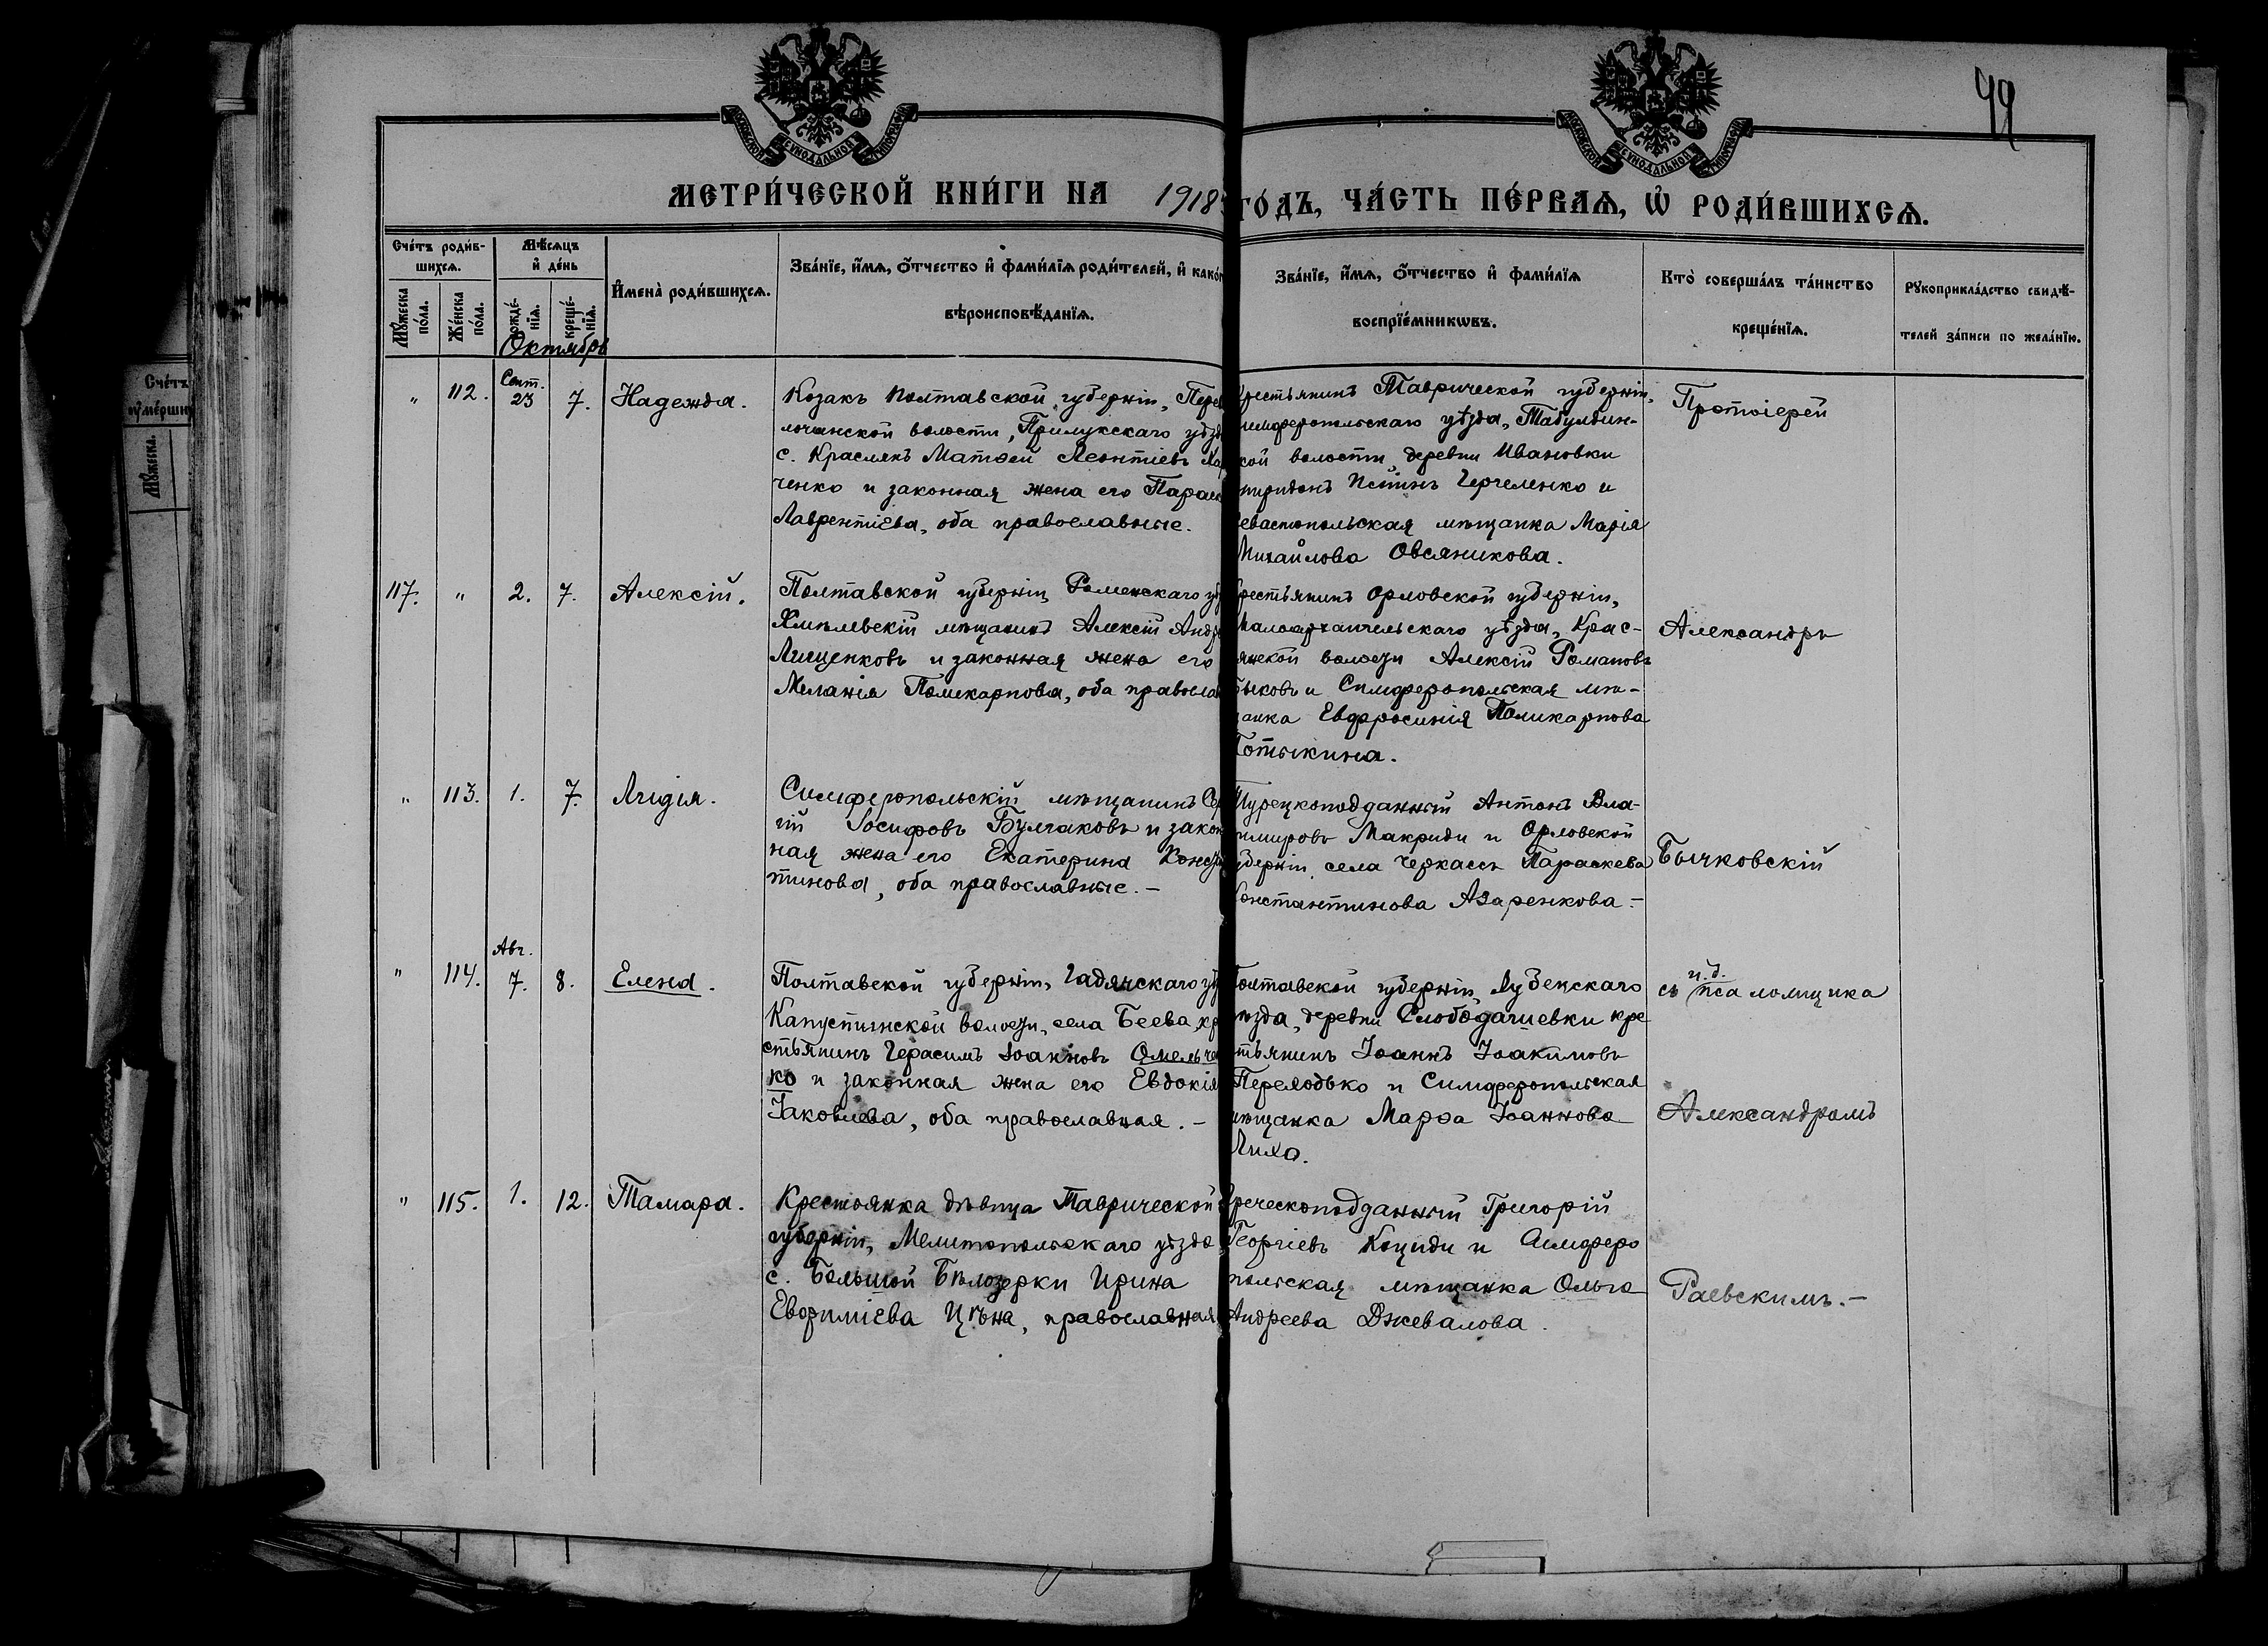 99
МОСКОВСКОЙ СѴНОДАЛЬНОЙ ТИПОГРАФІИ
МОСКОВСКОЙ СѴНОДАЛЬНОЙ ТИПОГРАФІИ
МЕТРИ́ЧЕСКОЙ КНИ́ГИ НА 1918 ГО́ДЪ, ЧА́СТЬ ПЕ́РВАѦ, Ѡ҆ РОДИ́ВШИХСѦ.
Сче́тъ роди́в-
шихсѧ.
Мꙋ́жеска по́ла.
Же́нска по́ла.
Мѣ́сѧцъ
и҆ де́нь
рожде́-
нїѧ.
креще́-
нїѧ.
Октябрь
И҆мена̀ роди́вшихсѧ.
Зва́нїе, и҆́мѧ, ѻ҆́тчество и҆ фами́лїѧ роди́телей, и҆ како́г
вѣроисповѣ́данїѧ.
Зва́нїе, и҆́мѧ, ѻ҆́тчество и҆ фами́лїѧ
воспрїе́мникѡвъ.
Кто̀ соверша́лъ та́инство
креще́нїѧ.
Рꙋкоприкла́дство свидѣ́-
телей за́писи по жела́нїю.
Счетъ
ꙋмершн
Мꙋжеска
" 112. Сент. 23 7. Надежда.
Козакъ Полтавской губерніи, Перев
лочанской волости, Прилукскаго уѣзд
с. Краслянъ Матѳей Леонтіевъ Хар
ченко и законная жена его Параск
Лаврентіева, оба православные.
Крестьянинъ Таврической губерніи,
имферопольскаго уѣзда, Табулдин-
кой волости, деревни Ивановки
пиридонъ Герченко и
евастопольская мѣщанка Марія
Михайлова Овсяникова.
Протоіерей
117. " 2. 7. Алексій.
Полтавской губерніи, Роменскаго уѣ
Хмѣлевскій мѣщанинъ Алексій Андр
Лищенковъ и законная жена его
Меланія Поликарпова, оба правосла
рестьянинъ Орловской губерніи,
Малоархангельскаго уѣзда, Крас-
янской волости Алексій Романовъ
Быковъ и Симферопольская мѣ-
щанка Евфросинія Поликарпова
Готыкина.
Александръ
" 113. 1. 7. Лидія.
Симферопольскій мѣщанинъ Сер
гій Іосифовъ Булгаковъ и закон
ная жена его Екатерина Конста
тинова, оба православные. –
Турецкоподданный Антонъ Вла-
имировъ Макриди и Орловской
уберніи, села Черкассъ Параскева
Константинова Азаренкова –
Бычковскій
" 114. Авг. 7. 8. Елена.
Полтавской губерніи, Гадячскаго уѣ
Капустинской волости, села Беева, кр
стьянинъ Герасимъ Іоанновъ Омельчен
ко и законная жена его Евдокія
Іаковлева, оба православная. –
Полтавской губерніи, Лубенскаго
ѣзда, деревни кре
тьянинъ Іоаннъ Іоакимовъ
Перелодько и Симферопольская
мѣщанка Марѳа Іоаннова
Лихо.
и. д.
съ псаломщика
Александромъ
" 115. 1. 12. Тамара.
Крестьянка дѣвица Таврической
губерніи, Мелитопольскаго уѣзда
с. Большой Бѣлозерки Ирина
Евфиміева Цѣна, православная
Греческоподданный Григорій
Георгіевъ Коциди и Симферо
польская мѣщанка Ольга
Андреева Джевалова.
Раевскимъ. –